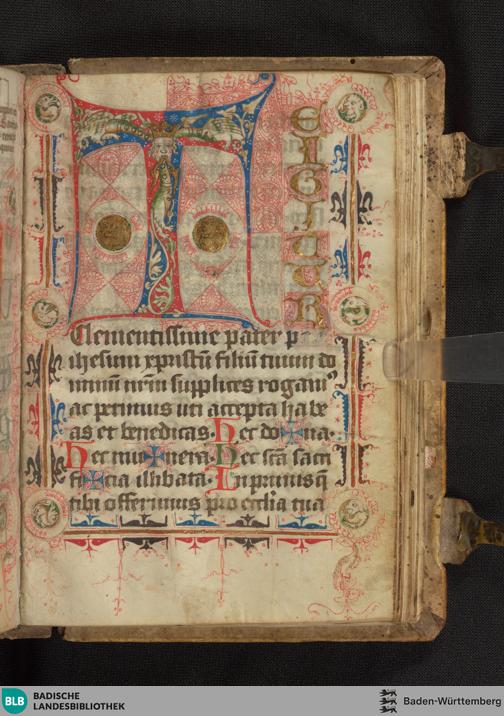 T
E
I
G
I
T
U
R
Clementissime pater p
ihesum xpristū filiū tuum do
minū nr̄m supplices rogam⁹
ac petimus uti accepta habe
as et benedicas. Hec do✠na.
Hec mu✠nera. Hec sc̄a sacri
fi✠cia illibata. In primis q̄
tibi offerimus pro eccl̄ia tua
BLB
BADISCHE
LANDESBIBLIOTHEK
Baden-Württemberg